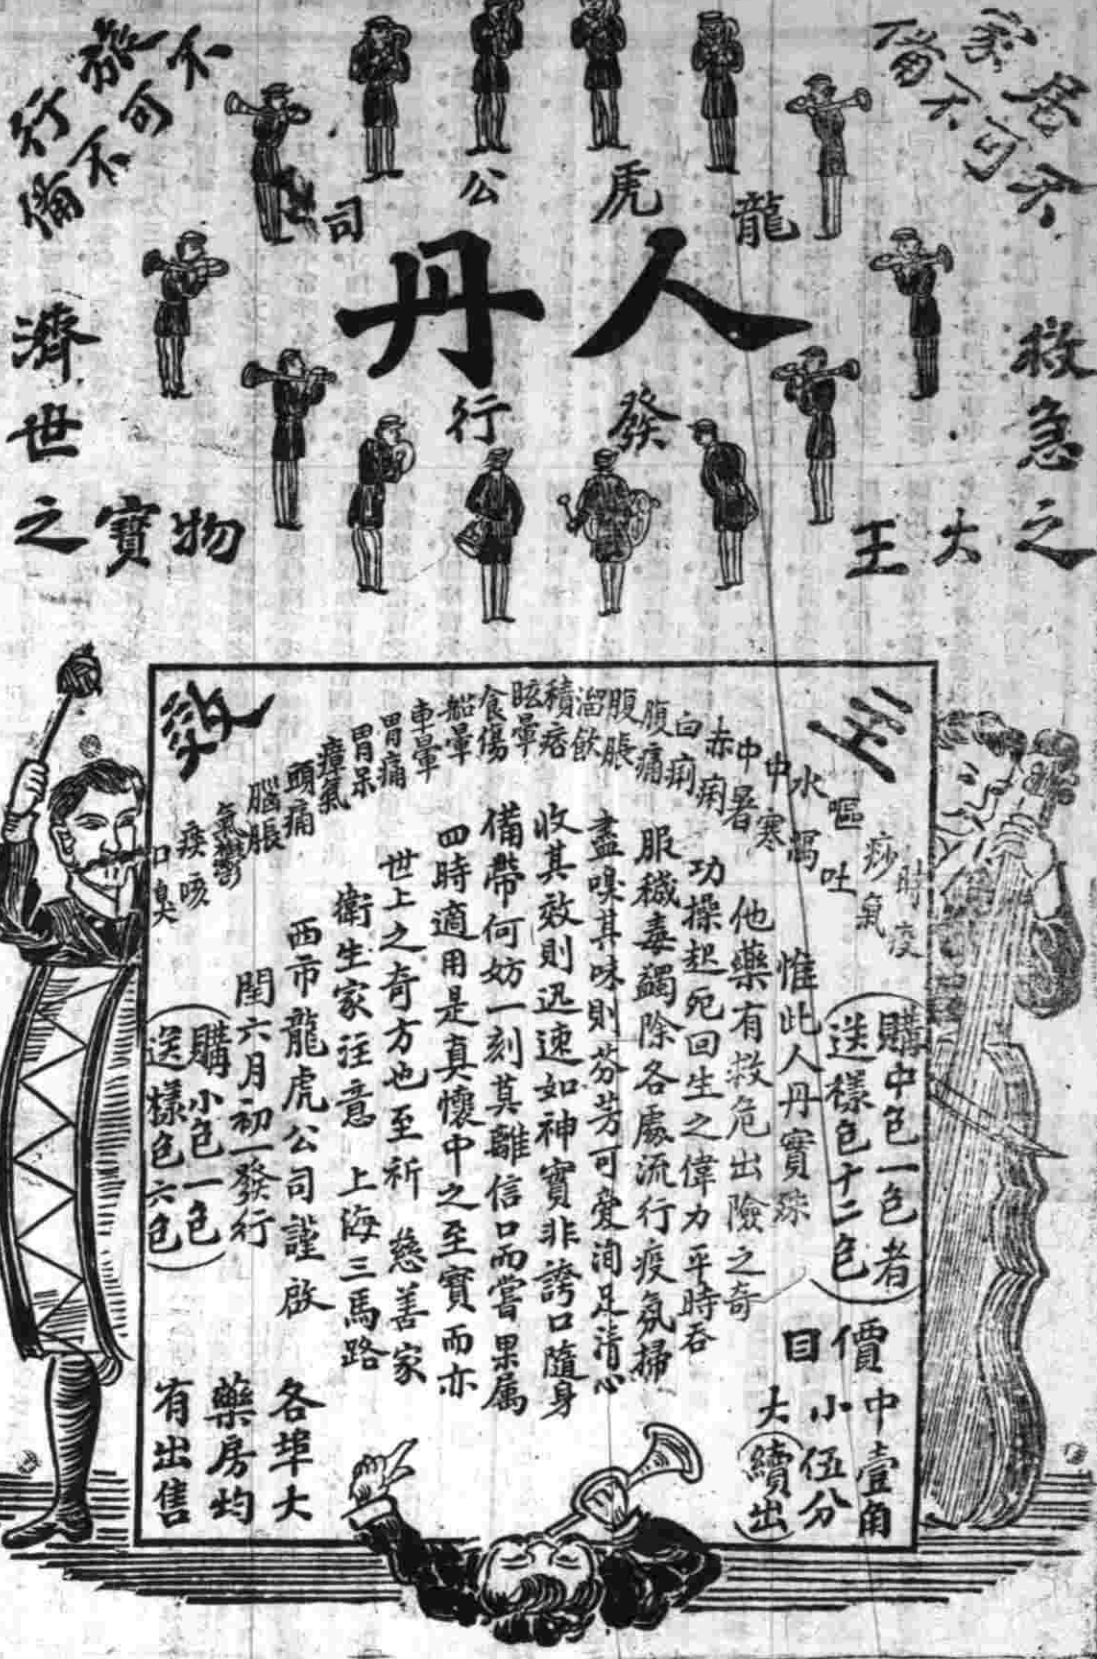 家居不可不備
旅行不可不備
龍虎公司
人丹
發行
救急之大王
濟世之寶物
主
效
時疫
痧氣
嘔吐
水瀉
中寒
中暑
赤痢
白痢
腹痛
腹脹
溜飲
積痞
眩暈
食傷
船暈
車暈
胃痛
胃呆
瘴氣
頭痛
腦脹
氣鬱
痰咳
口臭
購中包一包者
送樣包十二包
惟此人丹實殊
他藥有救危出險之奇
功操起死回生之偉力平時吞
服穢毒蠲除各處流行疫氛掃
盡嗅其味則芬芳可愛洵足清心
收其效則迅速如神實非誇口隨身
備帶何妨一刻莫離信口而嘗果屬
四時適用是真懷中之至寶而亦
世上之奇方也至祈 慈善家
衛生家注意 上海三馬路
西市龍虎公司謹啟
閏六月初一發行
購小包一包
送樣包六包
價目
中壹角
小伍分
大(續出)
各埠大
藥房均
有出售